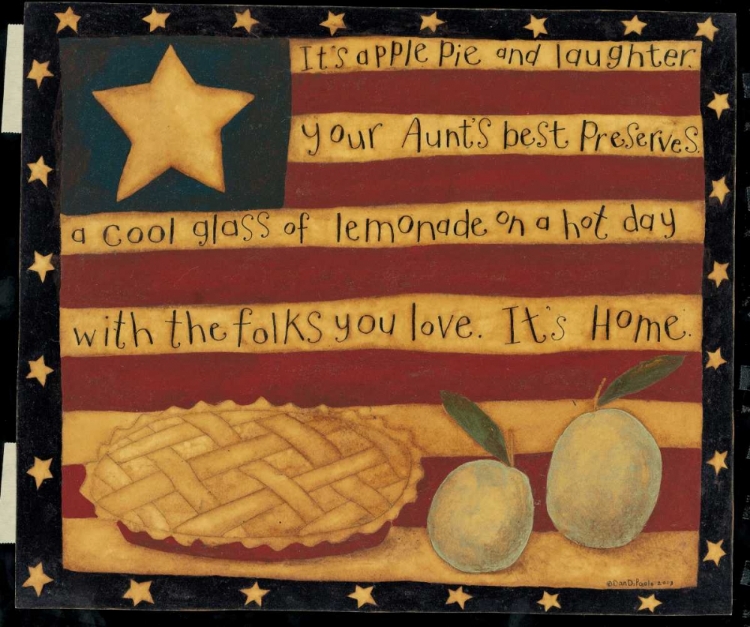 It's apple pie and laughter.
your Aunt's best Preserves.
a cool glass of lemonade on a hot day
with the folks you love. It's Home.
© Dan DiPaolo 2003